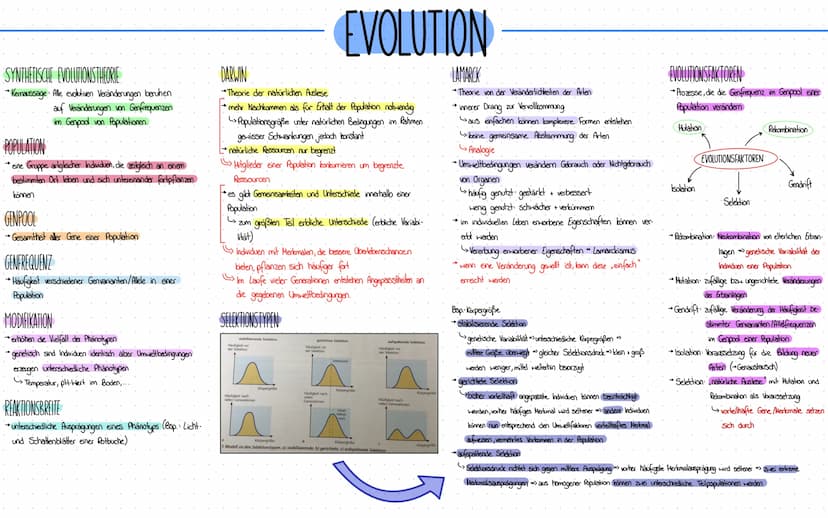 EVOLUTION
SYNTHETISCHE EVOLUTIONSTHEORIE
→ Kernaussage: Alle evolutiven Veränderungen beruhen
auf Veränderungen von Genfrequenzen
im Genpool von Populationen.
POPULATION
→ eine Gruppe artgleicher Individuen, die zeitgleich an einem
bestimmten Ort leben und sich untereinander fortpflanzen
können
GENPOOL
→ Gesamtheit aller Gene einer Population
GENFREQUENZ
→ Häufigkeit verschiedener Genvarianten/Allele in einer
Population
MODIFIKATION
→ erhöhen die Vielfalt der Phänotypen
→ genetisch sind Individuen identisch aber Umweltbedingungen
erzeugen unterschiedliche Phänotypen
↳ Temperatur, pH-Wert im Boden,...
REAKTIONSBREITE
→ unterschiedliche Ausprägungen eines Phänotyps (Bsp.: Licht-
und Schattenblätter einer Rotbuche)
DARWIN
→ Theorie der natürlichen Auslese
→ mehr Nachkommen als für Erhalt der Population notwendig
↳ Populationsgröße unter natürlichen Bedingungen im Rahmen
gewisser Schwankungen jedoch konstant
→ natürliche Ressourcen nur begrenzt
↳ Mitglieder einer Population konkurrieren um begrenzte
Ressourcen
→ es gibt Gemeinsamkeiten und Unterschiede innerhalb einer
Population
↳ zum größten Teil erbliche Unterschiede (erbliche Variabi-
lität)
↳ Individuen mit Merkmalen, die bessere Überlebenschancen
bieten, pflanzen sich häufiger fort
↳ Im Laufe vieler Generationen entstehen Angepasstheiten an
die gegebenen Umweltbedingungen.
SELEKTIONSTYPEN
stabilisierende Selektion
gerichtete Selektion
aufspaltende Selektion
Häufigkeit vor
der Selektion
Häufigkeit vor
der Selektion
Häufigkeit vor
der Selektion
Körpergröße
Körpergröße
Körpergröße
Häufigkeit nach
vielen Generationen
Häufigkeit nach
vielen
Generationen
Häufigkeit nach
vielen Generationen
Körpergröße
Körpergröße
Körpergröße
LAMARCK
→ Theorie von der Veränderlichkeiten der Arten
→ innerer Drang zur Vervollkommnung
↳ aus einfachen können komplexere Formen entstehen
↳ keine gemeinsame Abstammung der Arten
↳ Analogie
→ Umweltbedingungen verändern Gebrauch oder Nichtgebrauch
von Organen
↳ häufig genutzt: gestärkt + verbessert
wenig genutzt: schwächer + verkümmern
→ im individuellen Leben erworbene Eigenschaften können ver-
erbt werden
↳ Vererbung erworbener Eigenschaften = Lamarckismus
→ wenn eine Veränderung gewollt ist, kann diese „einfach"
erreicht werden
Bsp.: Körpergröße:
→ stabilisierende Selektion
↳ genetische Variabilität ⇒ unterschiedliche Körpergrößen ⇒
mittlere Größe überwiegt ⇒ gleicher Selektionsdruck ⇒ klein + groß
werden weniger, mittel weiterhin bevorzugt
→ gerichtete Selektion
↳ bisher vorteilhaft angepasste Individuen können beeinträchtigt
werden, vorher häufiges Merkmal wird seltener ⇒ andere Individuen
können nun entsprechend den Umweltfaktoren vorteilhaftes Merkmal
aufweisen, vermehrtes Vorkommen in der Population
→ aufspaltende Selektion
↳ Selektionsdruck richtet sich gegen mittlere Ausprägung ⇒ vorher häufigste Merkmalsausprägung wird seltener ⇒ zwei extreme
Merkmalsausprägungen ⇒ aus homogener Population können zwei unterschiedliche Teilpopulationen werden
EVOLUTIONSFAKTOREN
→ Prozesse, die die Genfrequenz im Genpool einer
Population verändern
Mutation
Rekombination
EVOLUTIONSFAKTOREN
Isolation
Selektion
Gendrift
→ Rekombination: Neukombination von elterlichen Erban-
lagen ⇒ genetische Variabilität der
Individuen einer Population
→ Mutation: zufällige bzw. ungerichtete Veränderungen
der Erbanlagen
→ Gendrift: zufällige Veränderung der Häufigkeit be-
stimmter Genvarianten/Allelfrequenzen
im Genpool einer Population
→ Isolation: Voraussetzung für die Bildung neuer
Arten (→ Genaustausch)
→ Selektion: „natürliche Auslese" mit Mutation und
Rekombination als Voraussetzung
↳ vorteilhafte Gene/Merkmale setzen
sich durch